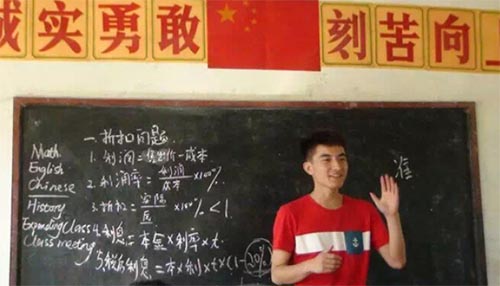 诚实勇敢 刻苦向上
Math
English
Chinese
History
Expanding class
Class meeting
一.折扣问题
1. 利润=售出价-成本
2. 利润率=利润/成本×100%
3. 折扣=×100%<1
4. 利息=本金×利率×t
5 税后利息=本×利×t×(1-20%)